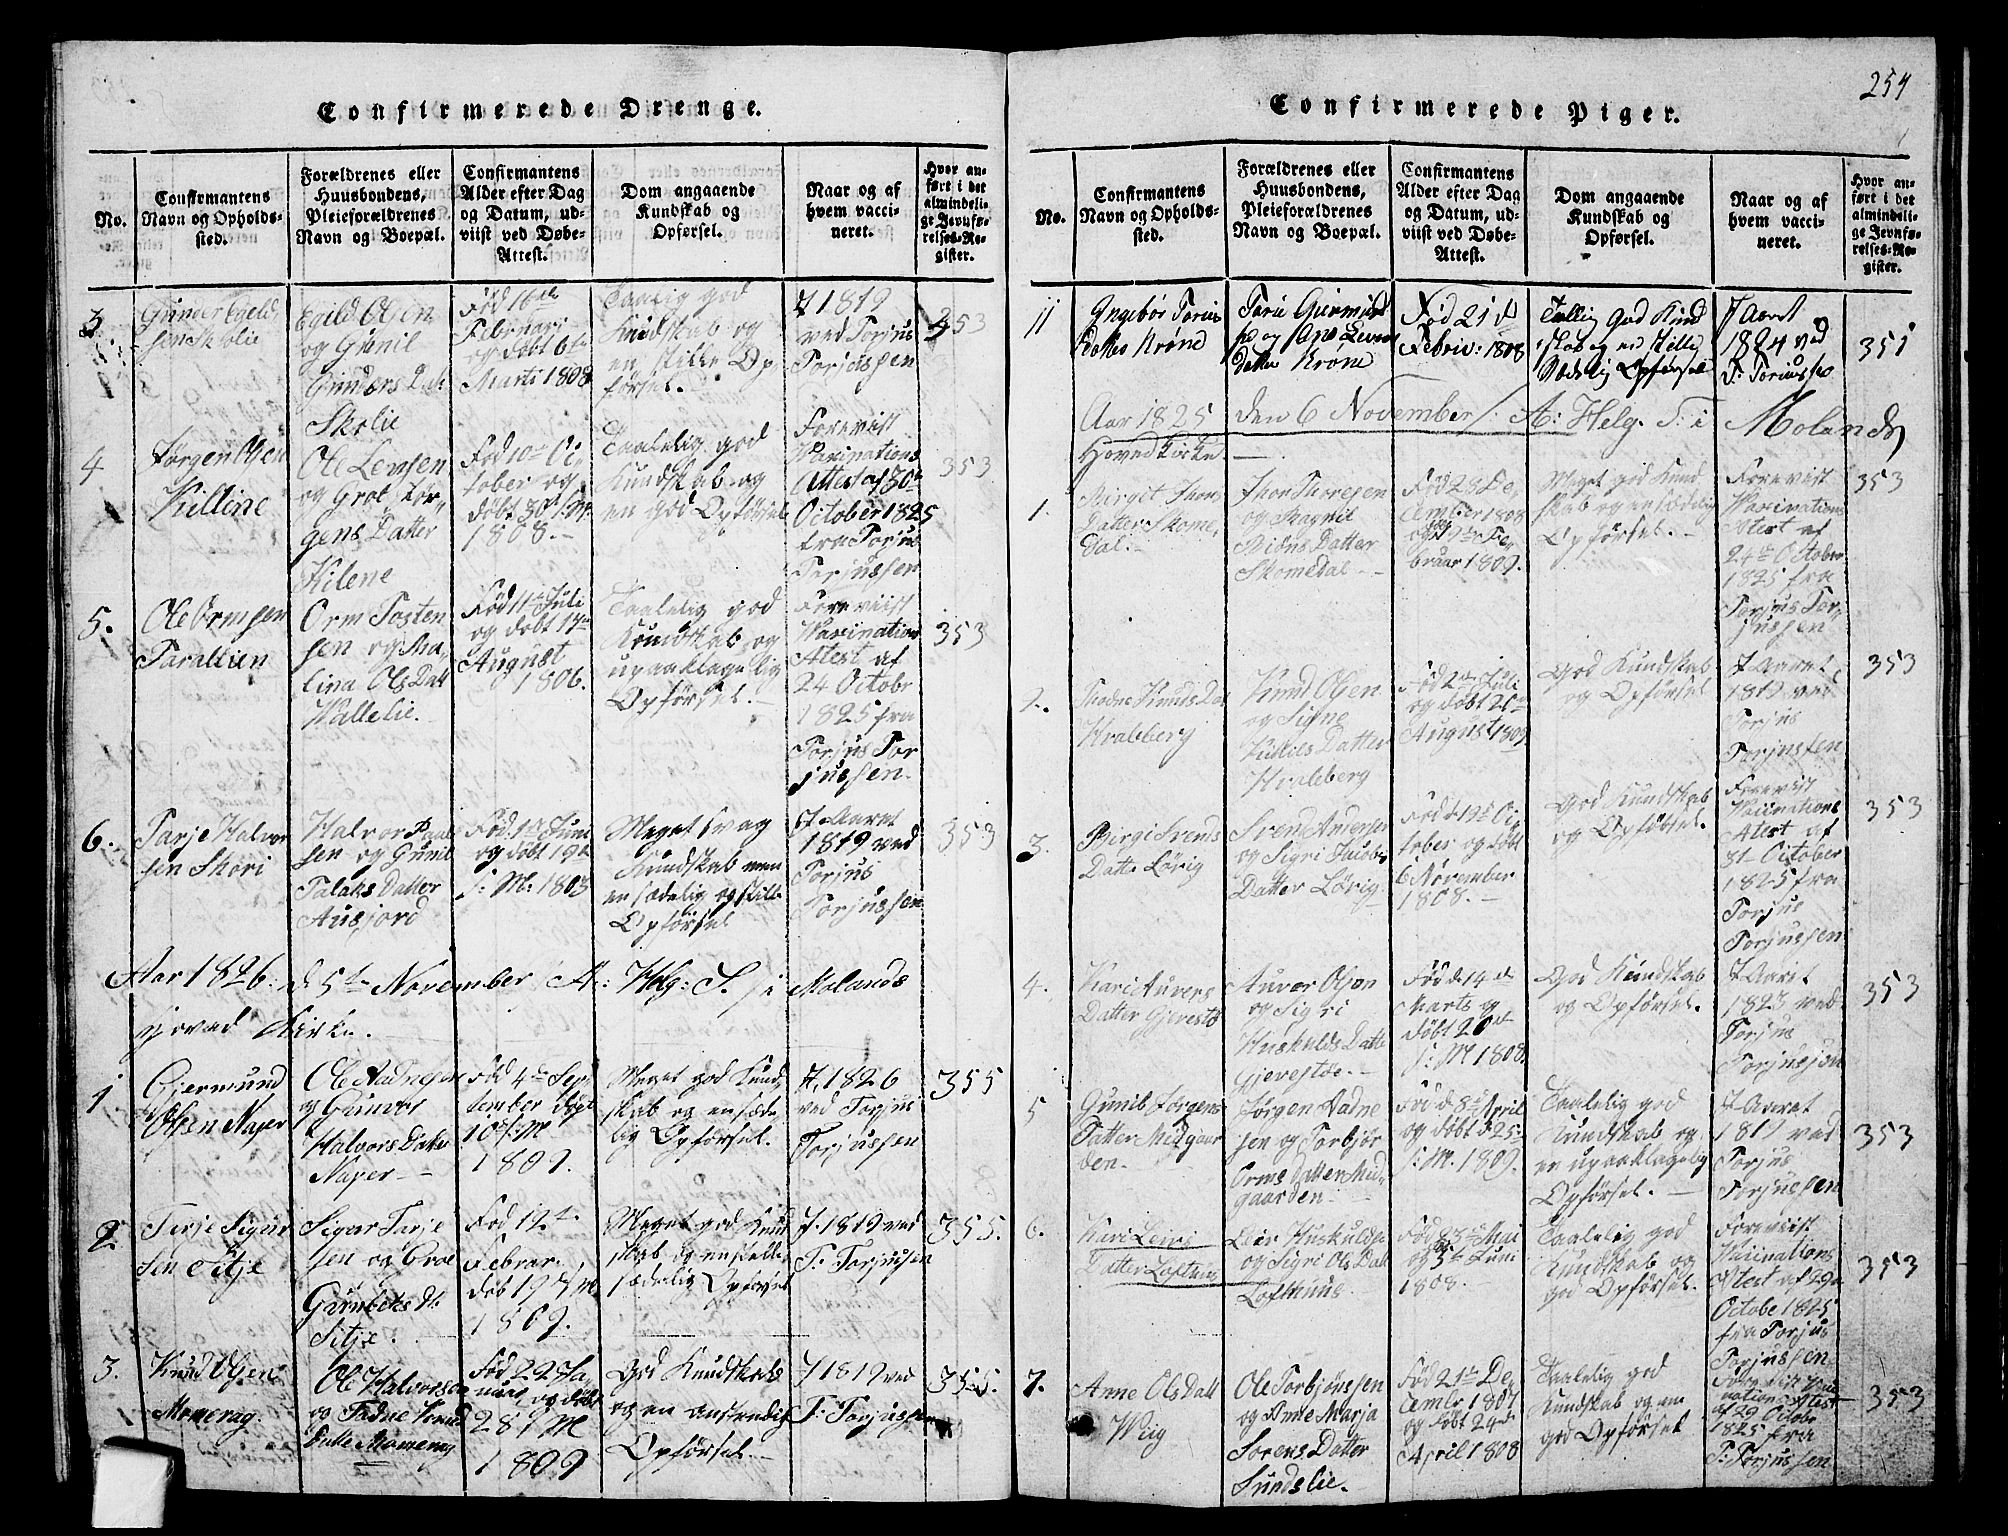 Confirmerede Drenge.
No.
Confirmantens
Navn og Opholds-
sted.
Forældrenes eller
Huusbondens,
Pleieforældrenes
Navn og Boepæl.
Confirmantens
Alder efter Dag
og Datum, ud-
viist ved Døbe-
Attest.
Dom angaaende
Kundskab og
Opførsel.
Naar og af
hvem vacci-
neret.
Hvor an-
ført i det
almindeli-
ge Jevnfø-
relses-Re-
gister.
3
Gunder Egild
sen Skolie
Egild Olsen
og Gunil
Gunders Dat
Skolie
Fød 16de
Februari
og døbt 6te
Marti 1808
Taalig god
Kundskab og
en stille Op,
førsel.
J 1819
ved Torjus
Torjussen
353
4
Jørgen Olsen
Killine
Ole
og Grot Jør,
gens Datter
Kilene
Fød 10de Oc
tober og
døbt 30 s: M:
1808.
Taalelig god
Kundskab og
en god Opførsel
Forevist
Waxinations
Attest af 30te
October 1825
fra Torjus
Torjussen
353
5.
Ole Ormsen
Orm Tosten
sen og Ma,
lina Ols Datt
Wallelie.
Fød 11te Juli
og døbt
August
1806.
Taalelig god
Kundskab og
upaaklagelig
Opførsel.
Foreviist
Waxination
Atest af
24 Octobr
1825 fra
Torjus Tor
jussen.
353
6.
Tarje Halvor
sen Skori
Halvor
sen og Gunil
Talaks Datter
Ausjord
Fød 1te Juni
og døbt 19de
s: M: 1803
Meget svag
Kundskab men
en sædelig og stille
Opførsel
J Aaret
1819 ved
Torjus
Torjussen
353
Aar 1826: d 5te November A: Helg: S. i Molands
Hoved Kirke.
1
Gjermund
Olsen Naper
Ole Aadnesen
og Gunvor
Halvors Datter
Naper
Fød 4de Sep,
tember døpt
10 s: M
1809.
Meget god Kund,
skab og en sæde,
lig Opførsel.
J, 1826
ved Torjus
Torjussen
355
2
Terje Sigur
sen Sitje
Sigur Tarje
sen og Groe
Gunbiørs D:
Sitje.
Fød 12te
Febrar,
døb 19 s: M
1809.
Meget god Kund
skab og en stille
sædelig Opførsel
J. 1819 ved
T: Torjusen
355.
3.
Knud Olsen
Momrag.
Ole Halvorsen
og Tadne Knud
Datte Momrag
Fød 22 Ja,
nuari og døbt
28 s M
1809
God Kundskab
og en anstendig
Opførsel.
J 1819 ved
T: Torjussen
355.
254
Confirmerede Piger.
No.
Confirmantens
Navn og Opholds-
sted.
Forældrenes eller
Huusbondens,
Pleieforældrenes
Navn og Boepæl.
Confirmantens
Alder efter Dag
og Datum, ud-
viist ved Døbe-
Attest.
Dom angaaende
Kundskab og
Opførsel.
Naar og af
hvem vacci-
neret.
Hvor an-
ført i det
almindeli-
ge Jevnfø-
relses-Re-
gister.
11
Ingebør Torius
Datter Krone
Torie Giermund
datter Krone
Fød 21 d
Febrir: 1808
Tallig God Kund
skab og en Stille
Sædelig Opførsel
J Aaret
1824 ved
T: Toriussen
351
Aar 1825 den 6 November A: Helg. S: i Molands
Hovedkirke.
1.
Birgit Thors
Datter Skome,
dal.
Thor Thoresen
og Magnil
Datter
Skomedal
Fød 28 De,
cember 1808
og døbt Fe,
bruar 1809.
Meget god Kund
skab og en sædelig
Opførsel.
Forevist
Waxination
Atest af
24de October
1825 fra
Torjus Tor,
jussen
353
2.
Knuds Dat
Hvalsberg
Knud Olsen
og Signe
Kittils Datter
Hvalsberg
Fød 2den Juli
og døbt 20de
August 1809
God Kundskab
og Opførsel
J Aaret
1819 ved
Torjus
Torjussen
353
3.
Birgi Svends
Datte Lørig
Svend Andersen
og Sigri Jacobs
Datter Lørig
Fød 19de Oc,
tober og døbt
6 November
1808.
God Kundskab
og Opførsel.
Forevist
Waxinations
Atest af
31 October
1825 fra
Torjus
Torjussen
353
4.
Kari Auvers
Datter Gjevestø
Auver Olsen
og Sigri
Huskulds Datte
Gjevestøe.
Fød d 14de
Marts og
døbt 20de
s: M 1808.
God Kundskab
og Opførsel.
J Aaret
1823 ved
Torjus
Torjusson
353
5
Gunil Jørgens
Datter Midgaar
den.
Jørgen Aadne
sen og Torbjør
Orms Datter Mid,
gaarden.
Fød d 8de April
og døbt d 25de
s: M. 1809.
Taalelig god
Kundskab og
en upaaklagelig
Opførsel.
J Aaret
1819 ved
Torjus
Torjussen
353
6.
Kari Leivs
Datter Lofthuus
Leiv Huskuldsen
og Sigri Ols Dat
Lofthuus.
Fød Mai
og 5te Juni
1808.
Taalelig god
Kundskab og
god Opførsel.
Foreviist
Waxinations
Atest af 29de
Octobe 1825
fra Torjus
Torjussen
353
7.
Anne Ols Datt
Wiig
Ole Torbjørnssen
og Anne Marja
Sorens Datter
Sundslie.
Fød 21de De,
cembr 1807
og døbt 24de
April 1808
Taalelig god
Kundskab og en
god Opførsel
Forevist Waxi
nations Atest
af 29 Octobr
1825 fra
T: Torjussen
353